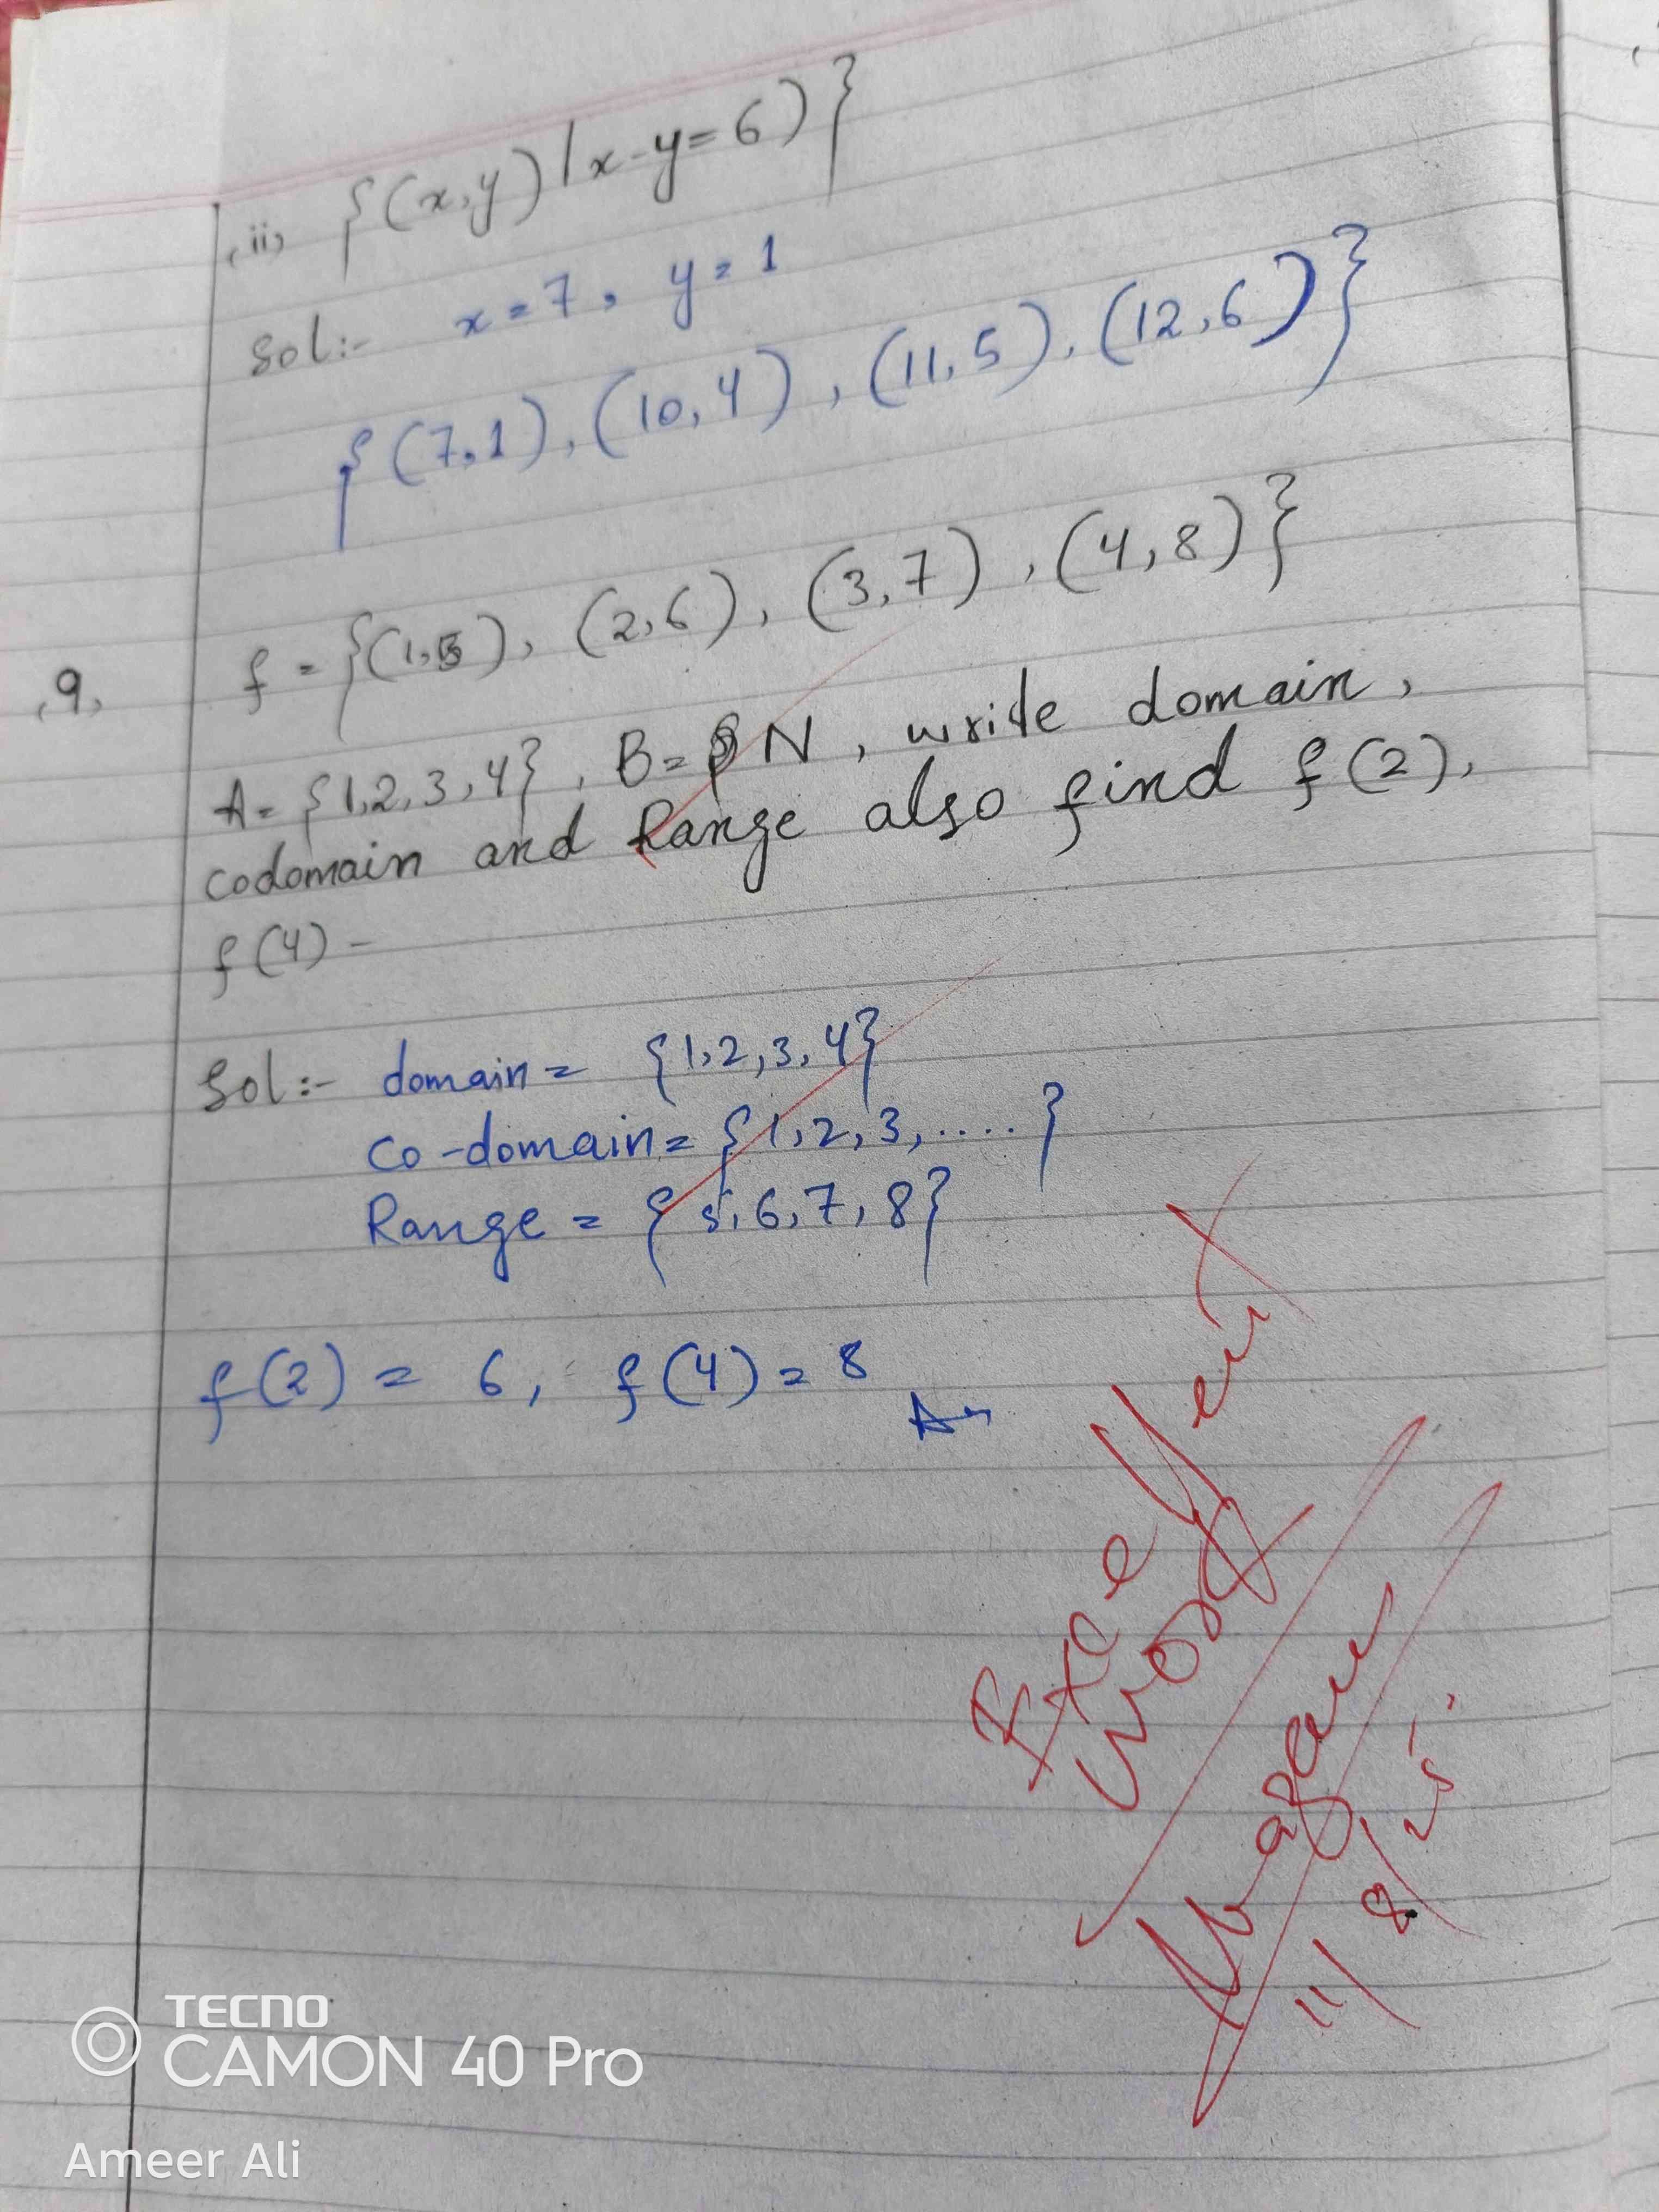 (ii) {(x,y) | x-y=6)}
Sol:- x=7, y=1
{(7,1), (10,4), (11,5), (12,6)}
(9) f = {(1,5), (2,6), (3,7), (4,8)}
A= {1,2,3,4}, B= N, write domain,
codomain and Range also find f(2),
f(4) -
Sol:- domain = {1,2,3,4}
Co-domain= {1,2,3,.....}
Range = {5,6,7,8}
f(2) = 6, f(4) = 8
Excellent
work
11/8/25
TECNO
CAMON 40 Pro
Ameer Ali